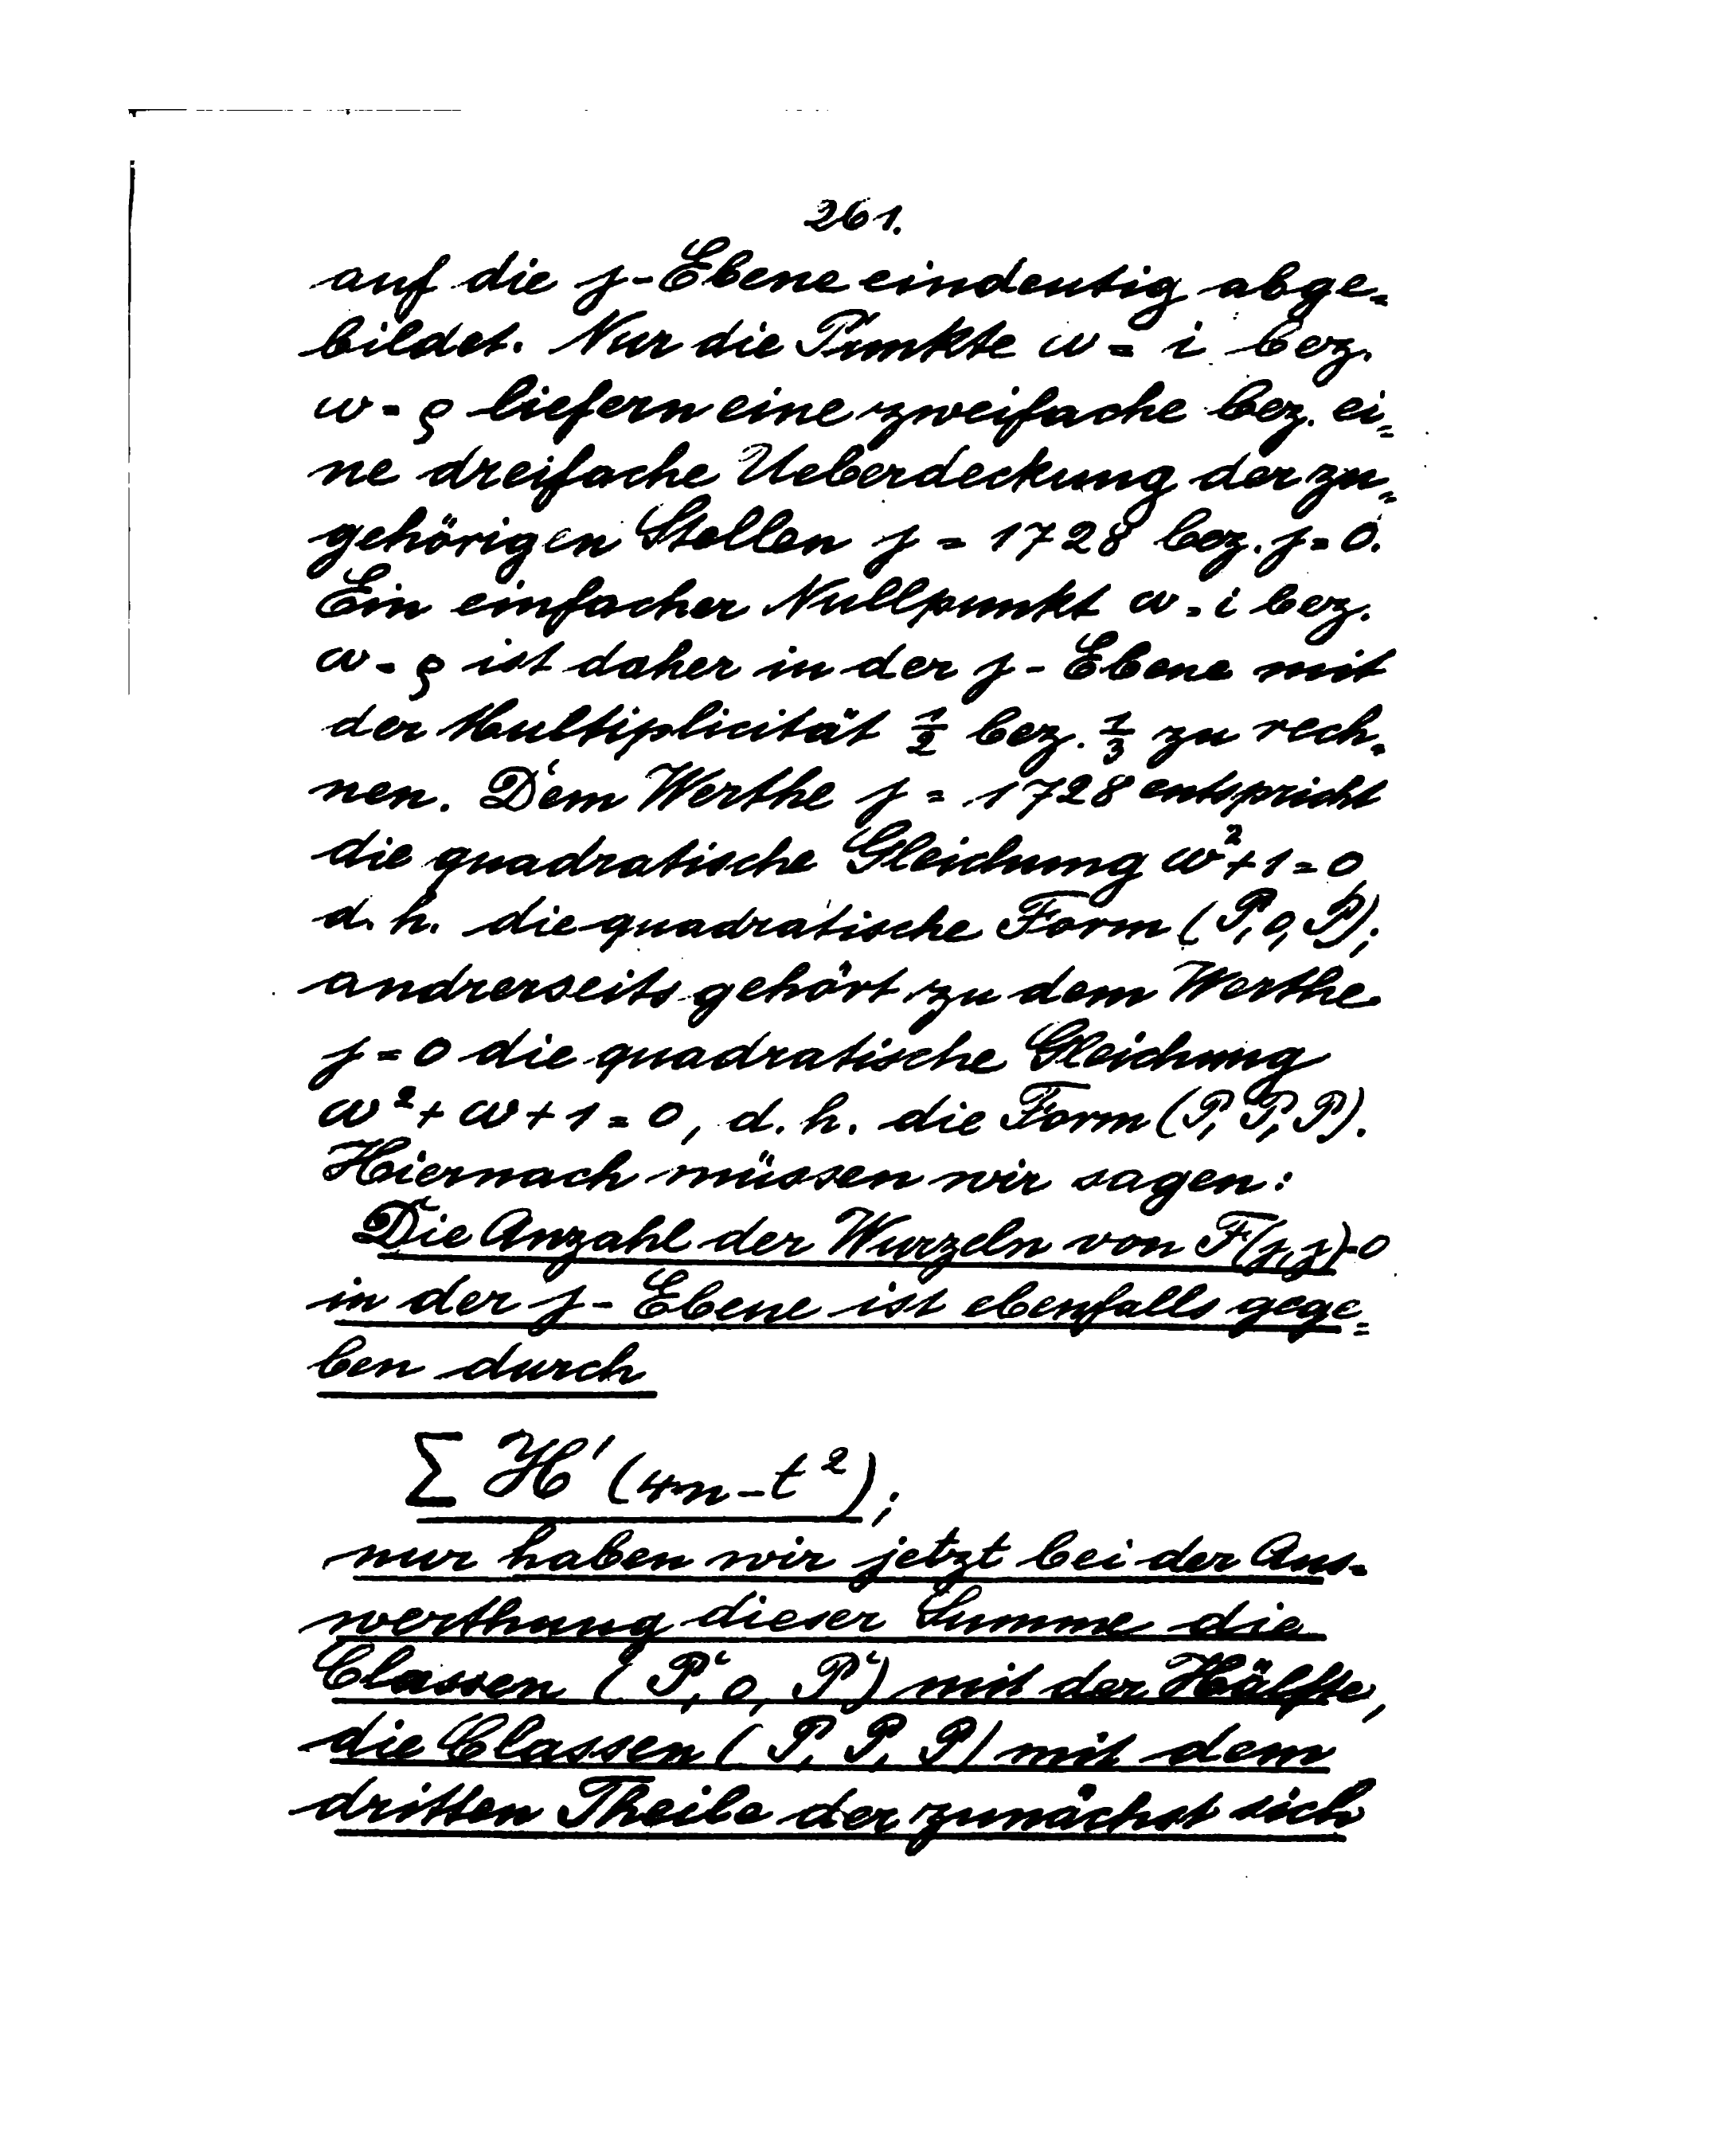 261.
auf die j-Ebene eindeutig abge-
bildet. Nur die Punkte ω = i bez.
ω = ρ liefern eine zweifache bez. ei-
ne dreifache Ueberdeckung der zu-
gehörigen Stellen j = 1728 bez. j = 0.
Ein einfacher Nullpunkt ω = i bez.
ω = ρ ist daher in der j-Ebene mit
der Multiplicität 1/2 bez. 1/3 zu rech-
nen. Dem Werthe j = 1728 entspricht
die quadratische Gleichung ω²+1=0
d. h. die quadratische Form (P, 0, P);
andrerseits gehört zu dem Werthe
j = 0 die quadratische Gleichung
ω² + ω + 1 = 0, d. h. die Form (P, P, P).
Hiernach müssen wir sagen:
Die Anzahl der Wurzeln von F(j, j)=0
in der j-Ebene ist ebenfalls gege-
ben durch
Σ H'(4n-t²);
nur haben wir jetzt bei der Aus-
werthung dieser Summe die
Classen (P, 0, P) mit der Hälfte,
die Classen (P, P, P) mit dem
dritten Theile der zunächst sich